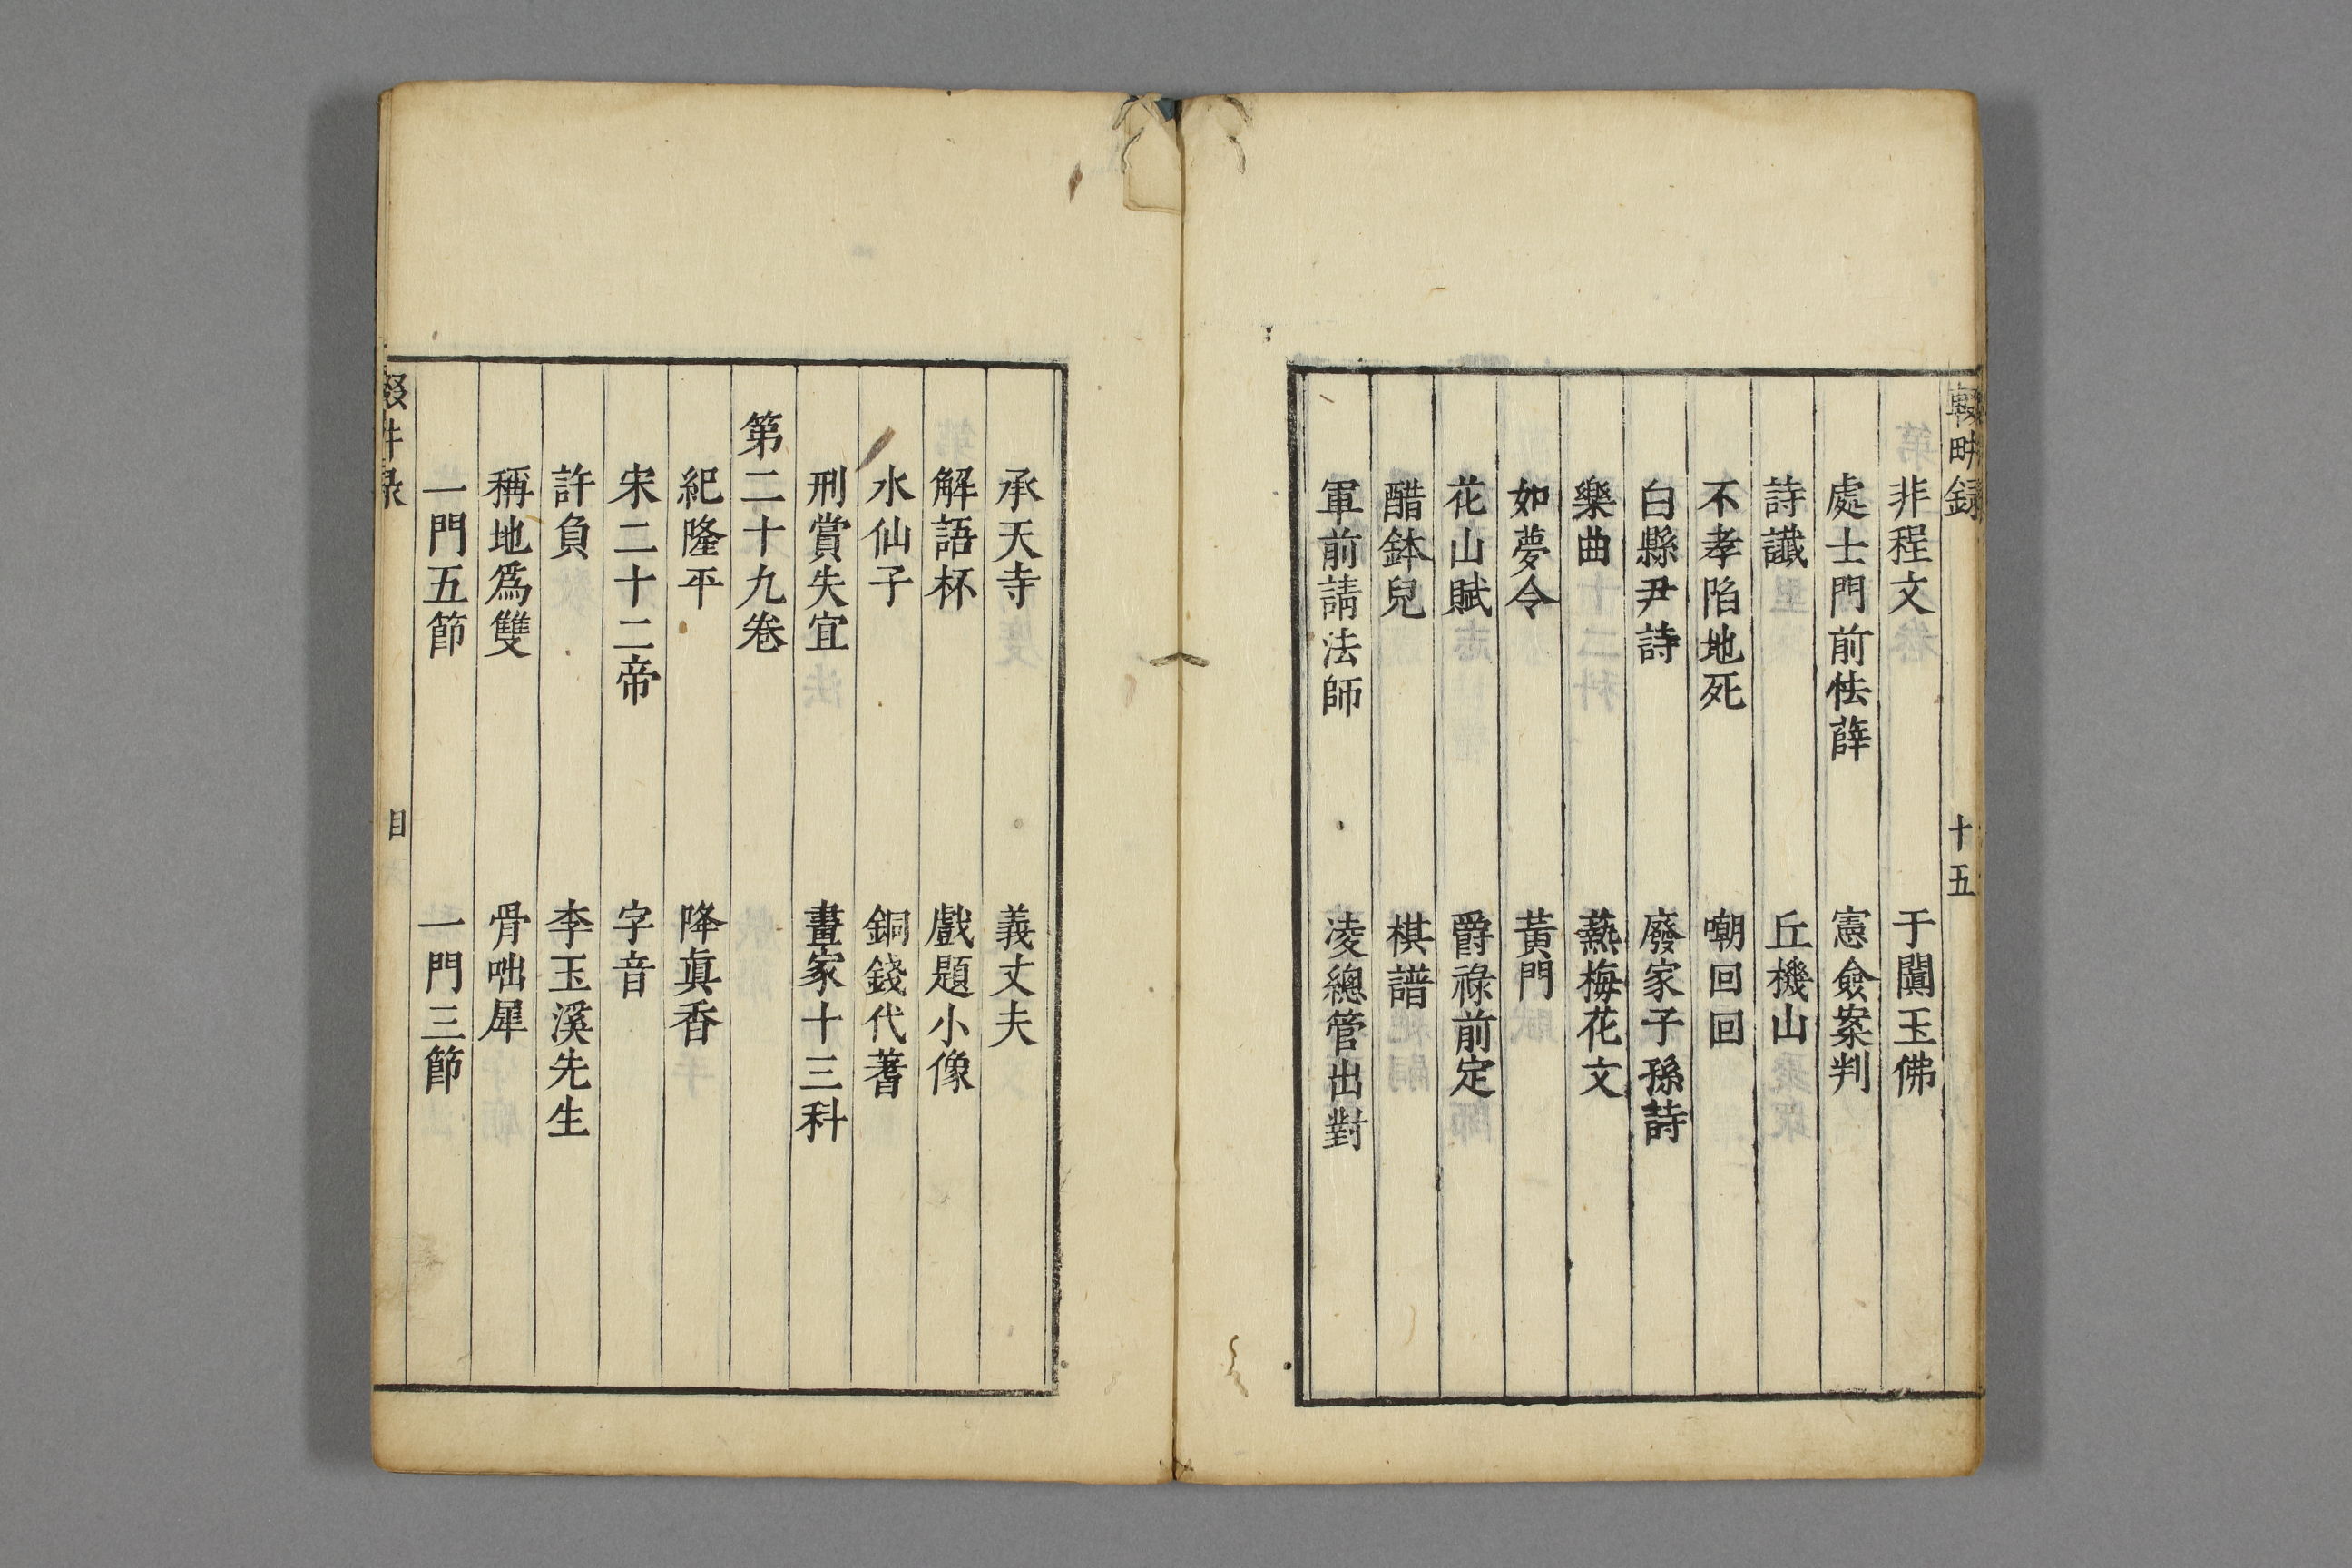 輟畊録
十五
非程文
于闐玉佛
處士門前怯薛
憲僉案判
詩讖
丘機山
不孝陷地死
嘲回回
白縣尹詩
廢家子孫詩
樂曲
爇梅花文
如夢令
黃門
花山賦
爵祿前定
醋鉢兒
棋譜
軍前請法師
凌總管出對
承天寺
義丈夫
解語杯
戲題小像
水仙子
銅錢代蓍
刑賞失宜
畫家十三科
第二十九卷
紀隆平
降眞香
宋二十二帝
字音
許負
李玉溪先生
稱地爲雙
骨咄犀
一門五節
一門三節
目